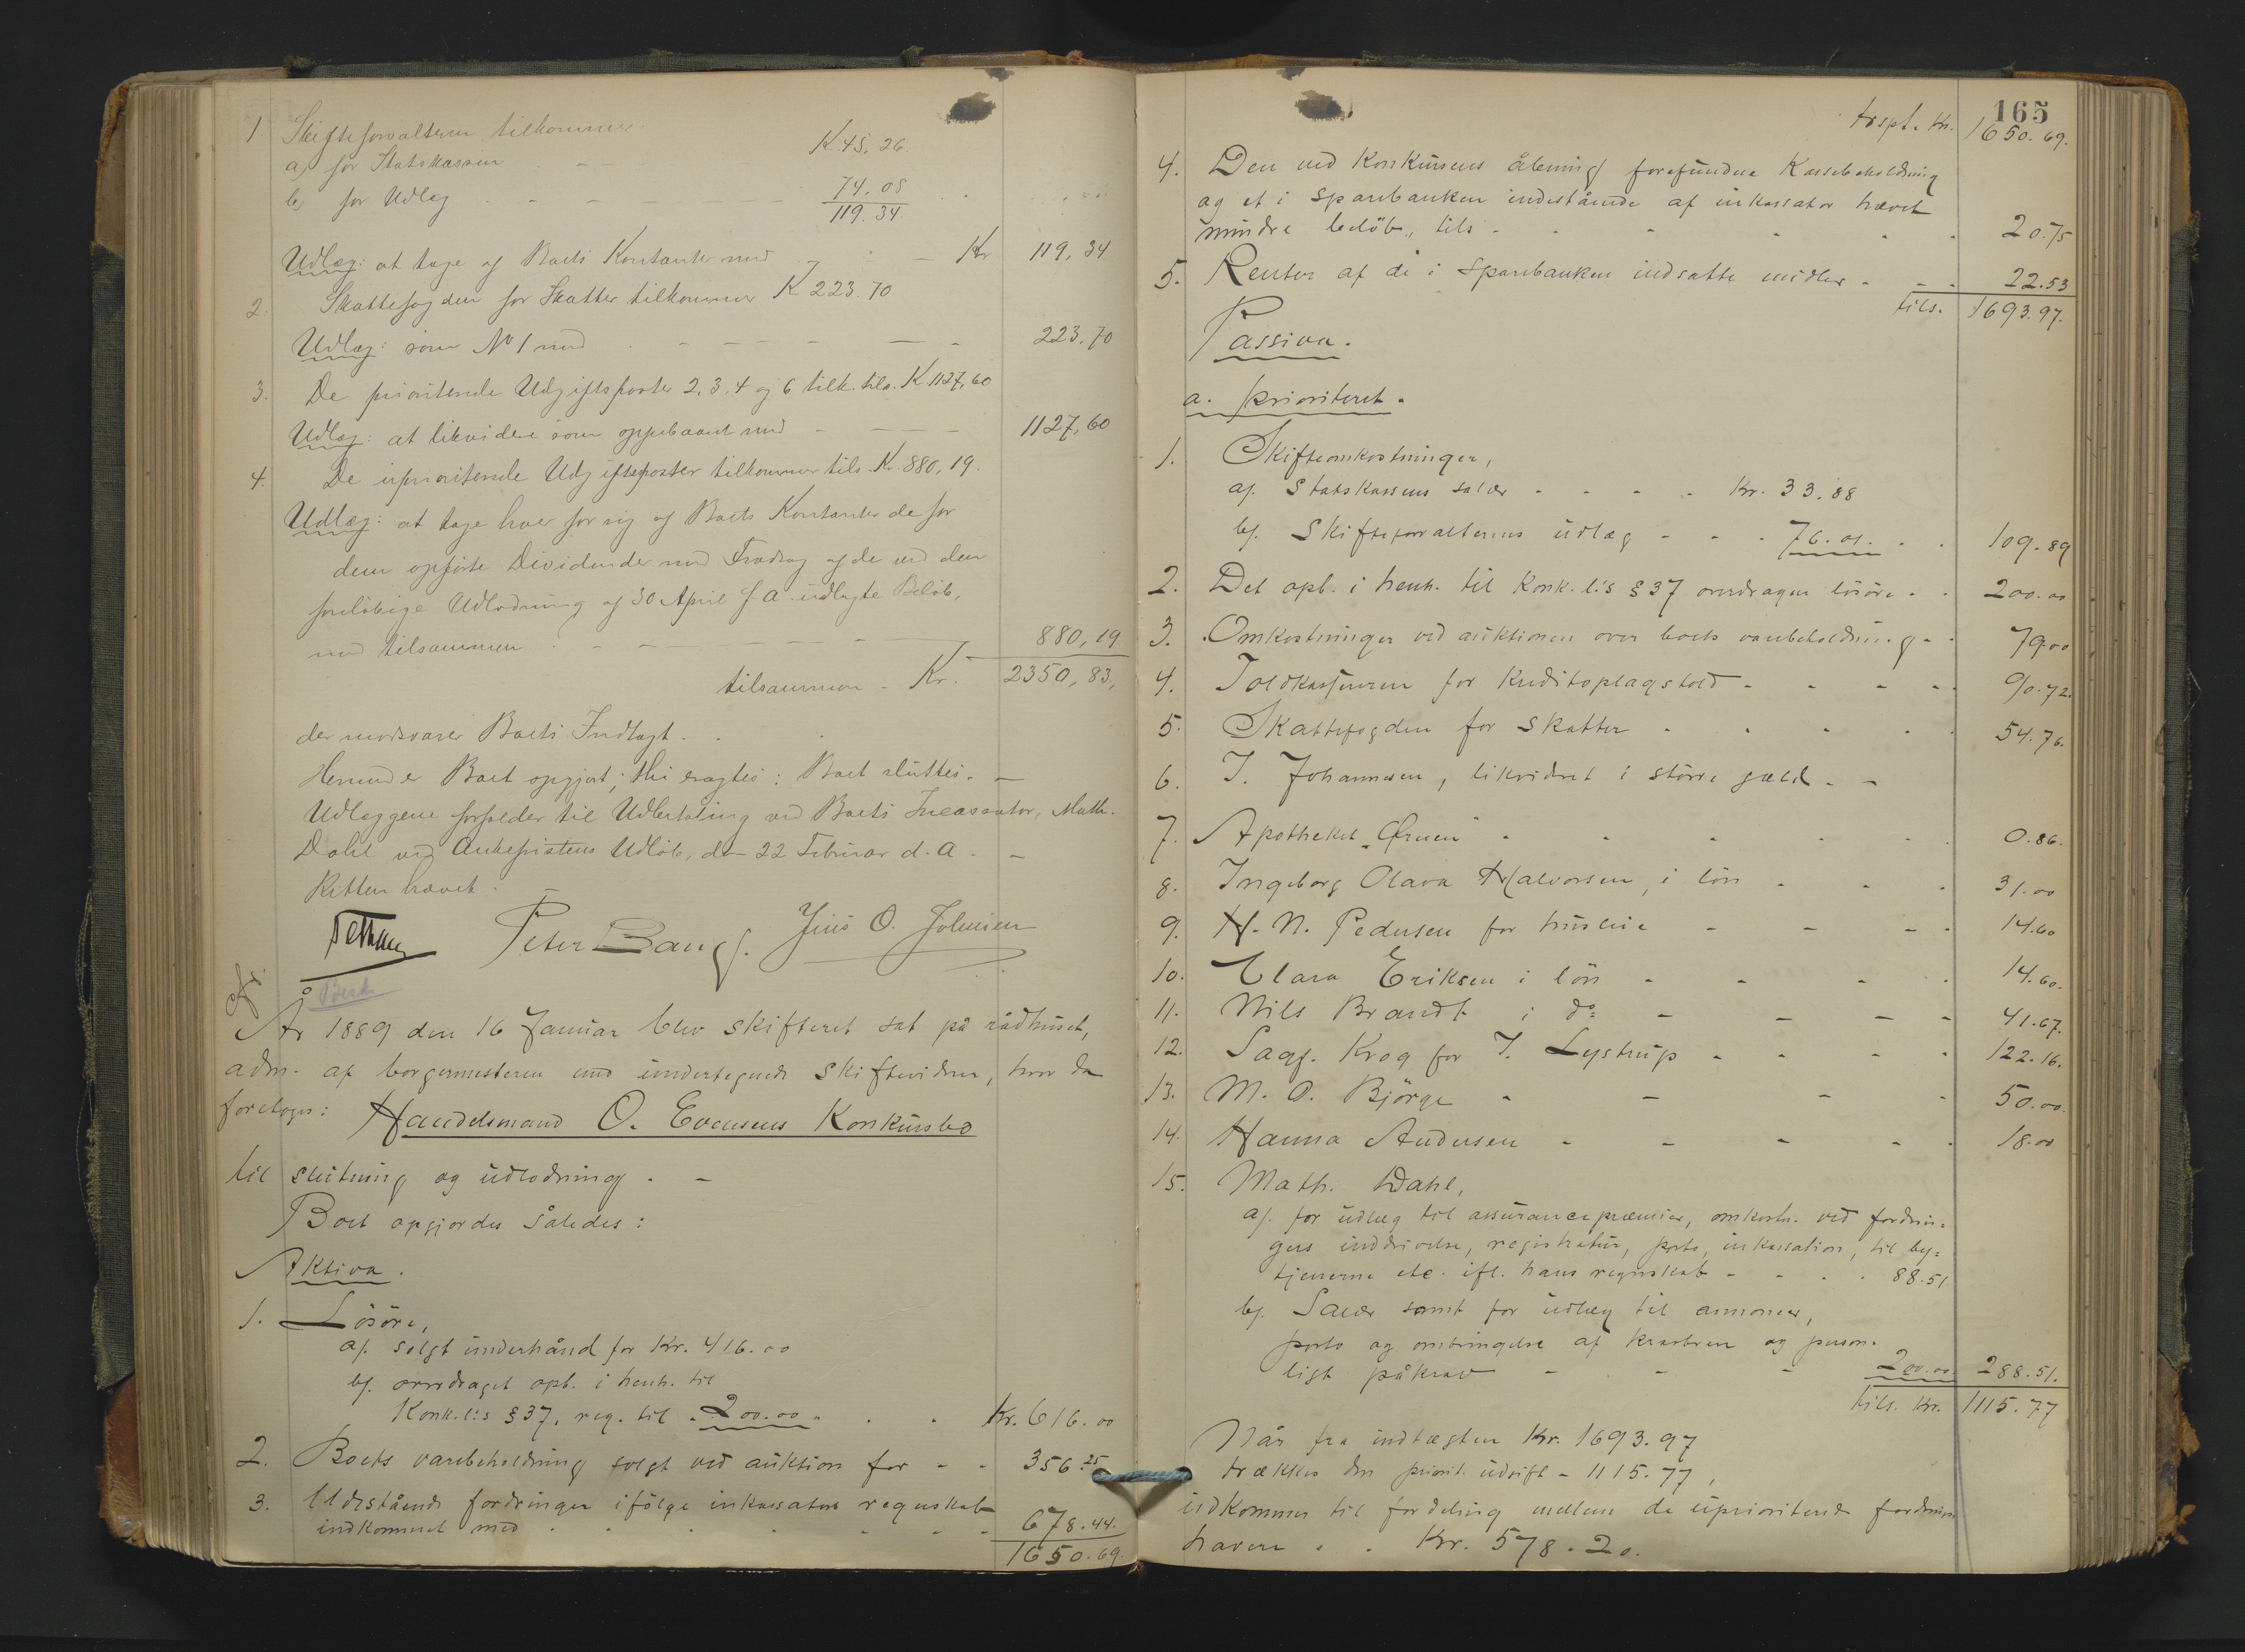 1. Skifteforvalteren tilkommer
a) for Statskassen - - K 45,26.
b) for Udlæg - - - - - 74.08
119.34.
Udlæg: at tage af Boets Kontanter med - - Kr 119,34
2. Skattefogden for Skatter tilkommer K 223.70
Udlæg: som No 1 med - - - - - 223,70
3. De prioriterede Udgiftsposter 2, 3, 4 og 6 tilk. tils. K 1127,60
Udlæg: at likvidere som oppebaaret med - - - 1127,60
4. De uprioriterede Udgiftsposter tilkommer tils. Kr. 880,19.
Udlæg: at tage hver for sig af Boets Kontanter de for
dem opførte Dividender med Fradrag af de ved den
foreløbige Udlodning af 30 April f. A. udlagte Beløb,
med tilsammen - - - - 880,19
tilsammen - Kr. 2350,83,
der modsvarer Boets Indtægt.
Herved er Boet opgjort; thi eragtes: Boet sluttes. -
Udlæggene forfalder til Udbetaling ved Boets Incassator, Math.
Dahl ved Ankefristens Udløb, den 22 Februar d. A. -
Retten hævet. -
Peter Bang. Jens O. Johnsen
År 1889 den 16 Januar blev skifteret sat på rådhuset,
adm. af borgermesteren med undertegnede skiftevidner, hvor da
foretoges:
Handelsmand O. Evensens Konkursbo
til slutning og udlodning. -
Boet opgjordes således:
Aktiva.
1. Løsøre,
a). solgt underhånd for Kr. 416.00
b). overdraget opb. i henh. til
Konk.l:s § 37, reg. til - 200.00 - . . Kr. 616.00
2. Boets varebeholdning solgt ved auktion for - - 356.25
3. Udestående fordringer ifølge inkassators regnskab
indkommet med - - - - - 678.44.
1650.69.
165
trspt. Kr. 1650.69.
4. Den ved Konkursens åbning forefundne Kassebeholdning
og et i sparebanken indestående af inkassator hævet
mindre beløb, tils - - - - 20.75
5. Renter af de i sparebanken indsatte midler - - - 22.53
tils. 1693.97.
Passiva.
a. prioriteret.
1. Skifteomkostninger,
a). Statskassens salær - - - - Kr. 33.88
b). Skifteforvalterens udlæg - - - 76.01. . . 109.89
2. Det opb. i henh. til Konk.l:s § 37 overdragne løsøre - - 200.00
3. Omkostninger ved auktionen over boets varebeholdning - - 79.00
4. Toldkassereren for Kreditoplagstold - - - - 90.72.
5. Skattefogden for skatter - - - - 54.76.
6. J. Johannesen, likvideret i større gæld - -
7. Apotheket "Ørnen" - - - - 0.86.
8. Ingeborg Olava Halvorsen, i løn - - - 31.00
9. H. N. Pedersen for husleie - - - - 14.60
10. Clara Eriksen i løn - - - - 14.60.
11. Nils Brandt i do - - - - 41.67.
12. Sagf. Krog for J. Lystrup - - - - 122.16.
13. M. O. Bjørge - - - - 50.00.
14. Hanna Andersen - - - - - 18.00
15. Math. Dahl,
a). for udlæg til assurancepræmier, omkostn. ved fordrin-
gers inddrivelse, registratur, porto, inkassation, til by-
tjenerne etc. ifl. hans regnskab - - - - 88.51
b). Salær samt for udlæg til annoncer,
porto og ombringelse af kravbreve og person-
ligt påkrav - - - 200.00 288.51.
tils. Kr. 1115.77
Når fra indtægten Kr. 1693.97
trækkes den priorit. udgift - 1115.77,
udkommer til fordeling mellem de uprioriterede fordrings
havere . . Kr. 578.20.